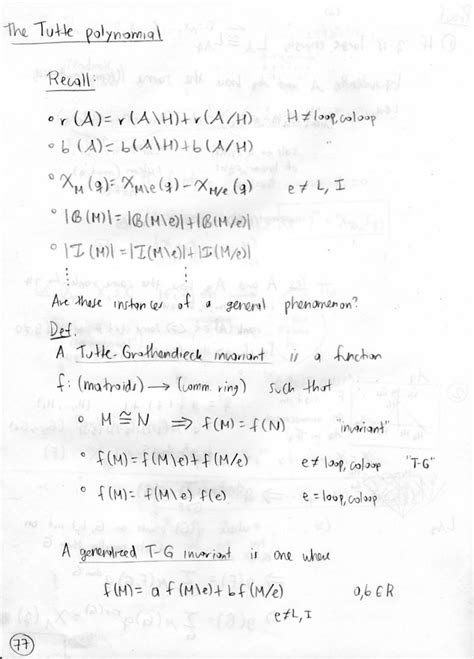 The Tutte polynomial
Recall:
∘ r(A) = r(A\H) + r(A/H) H ≠ loop, coloop
∘ b(A) = b(A\H) + b(A/H) "
∘ χ_M(q) = χ_{M\e}(q) - χ_{M/e}(q) e ≠ L, I
∘ |B(M)| = |B(M\e)| + |B(M/e)|
∘ |I(M)| = |I(M\e)| + |I(M/e)|
⋮ ⋮
Are these instances of a general phenomenon?
Def.
A Tutte-Grothendieck invariant is a function
f: (matroids) → (comm. ring) such that
∘ M ≅ N ⇒ f(M) = f(N) "invariant"
∘ f(M) = f(M\e) + f(M/e) e ≠ loop, coloop "T-G"
∘ f(M) = f(M\e) f(e) e = loop, coloop
A generalized T-G invariant is one where
f(M) = a f(M\e) + b f(M/e) a, b ∈ R
e ≠ L, I
77